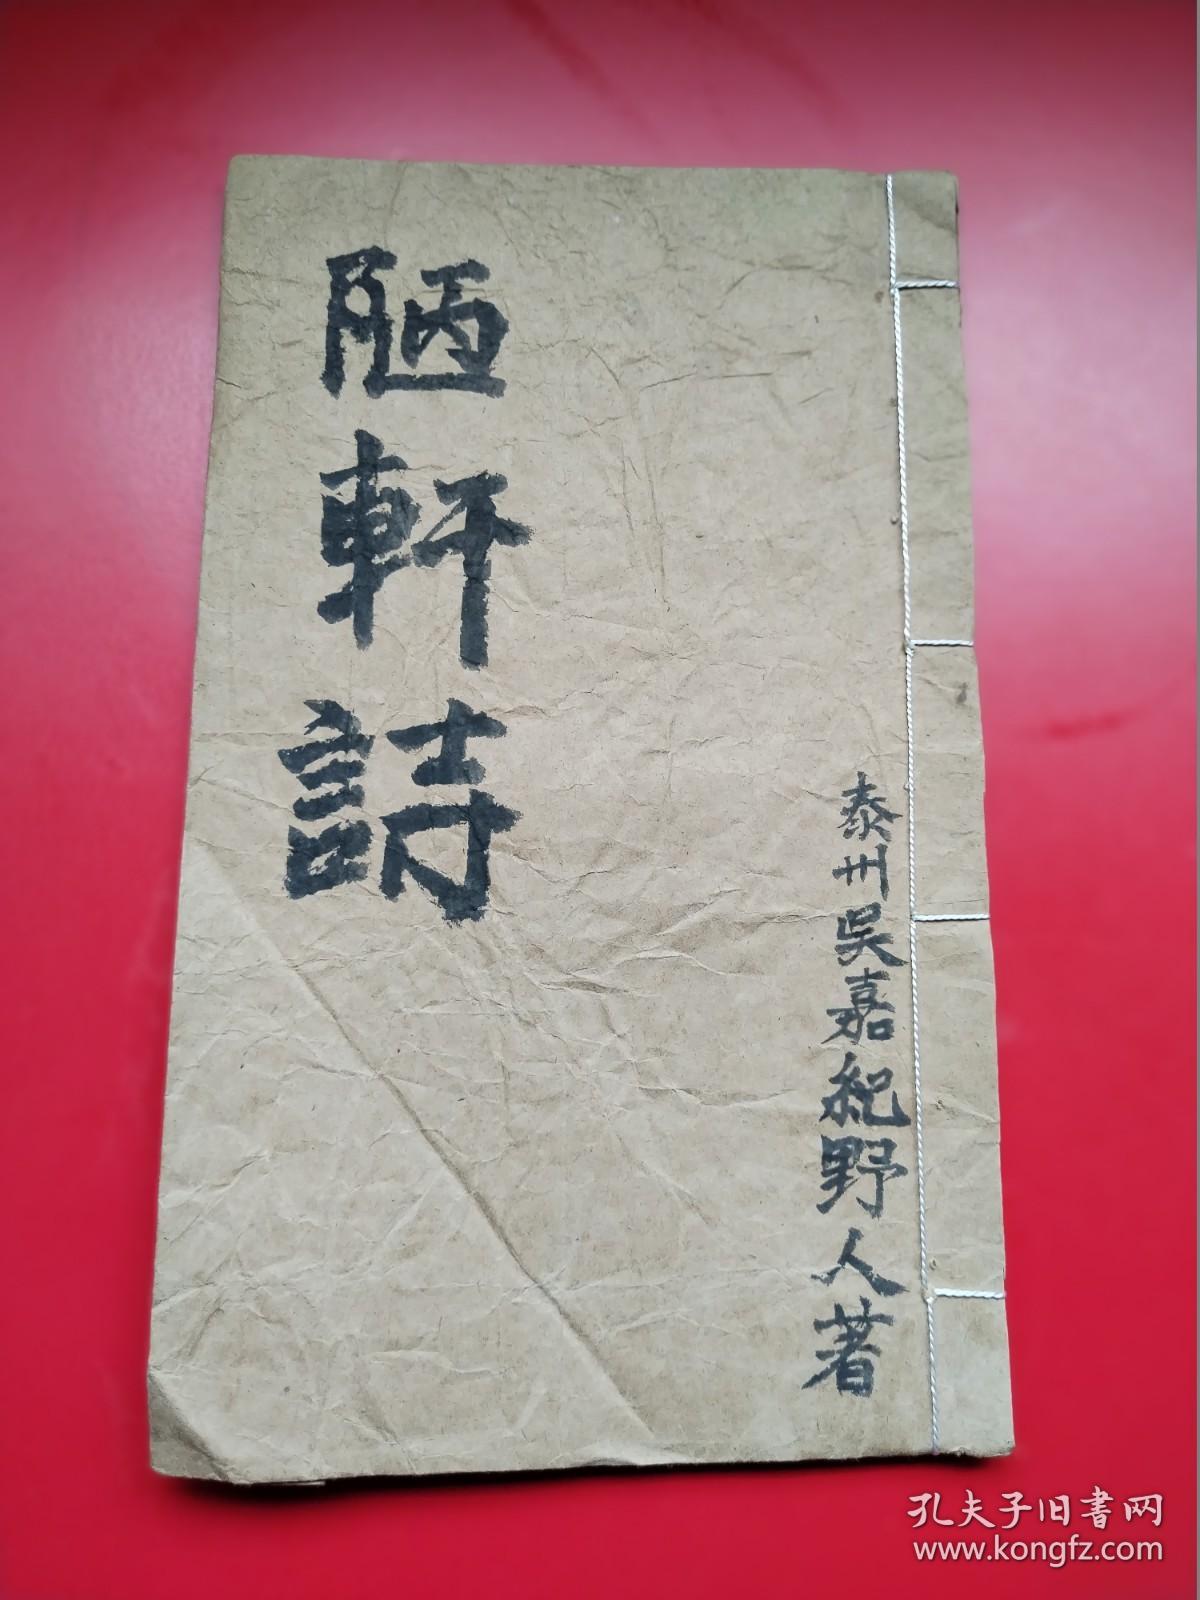 陋軒詩
泰州吳嘉紀野人著
孔夫子旧书网
www.kongfz.com